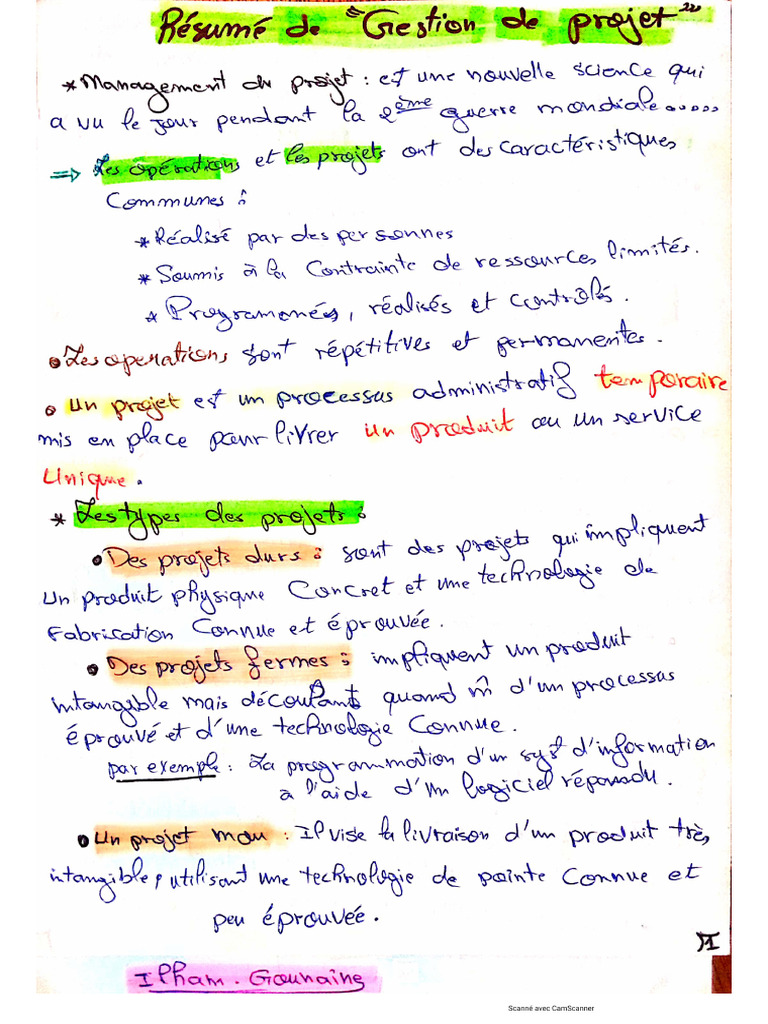 Résumé de "Gestion de projet"
* Management du projet : est une nouvelle science qui
a vu le jour pendant la 2ème guerre mondiale.....
⇒ Les opérations et les projets ont des caractéristiques
Communes :
* Réalisé par des personnes
* Soumis à la Contrainte de ressources limités.
* Programonés, réalisés et controlés.
• Les operations sont répétitives et permanentes.
• Un projet est un processus administratif temporaire
mis en place pour livrer un produit ou un service
Unique.
* Les types des projets :
• Des projets durs : sont des projets qui impliquent
Un produit physique Concret et une technologie de
Fabrication Connue et éprouvée.
• Des projets fermes : impliquent un produit
intangible mais découlant quand m̂ d'un processus
éprouvé et d'une technologie Connue.
par exemple : La programmation d'un syst d'information
à l'aide d'un logiciel répandu.
• Un projet mou : Il vise la livraison d'un produit très
intangible, utilisant une technologie de pointe Connue et
peu éprouvée.
1
Ilham. Gounaine
Scanné avec CamScanner